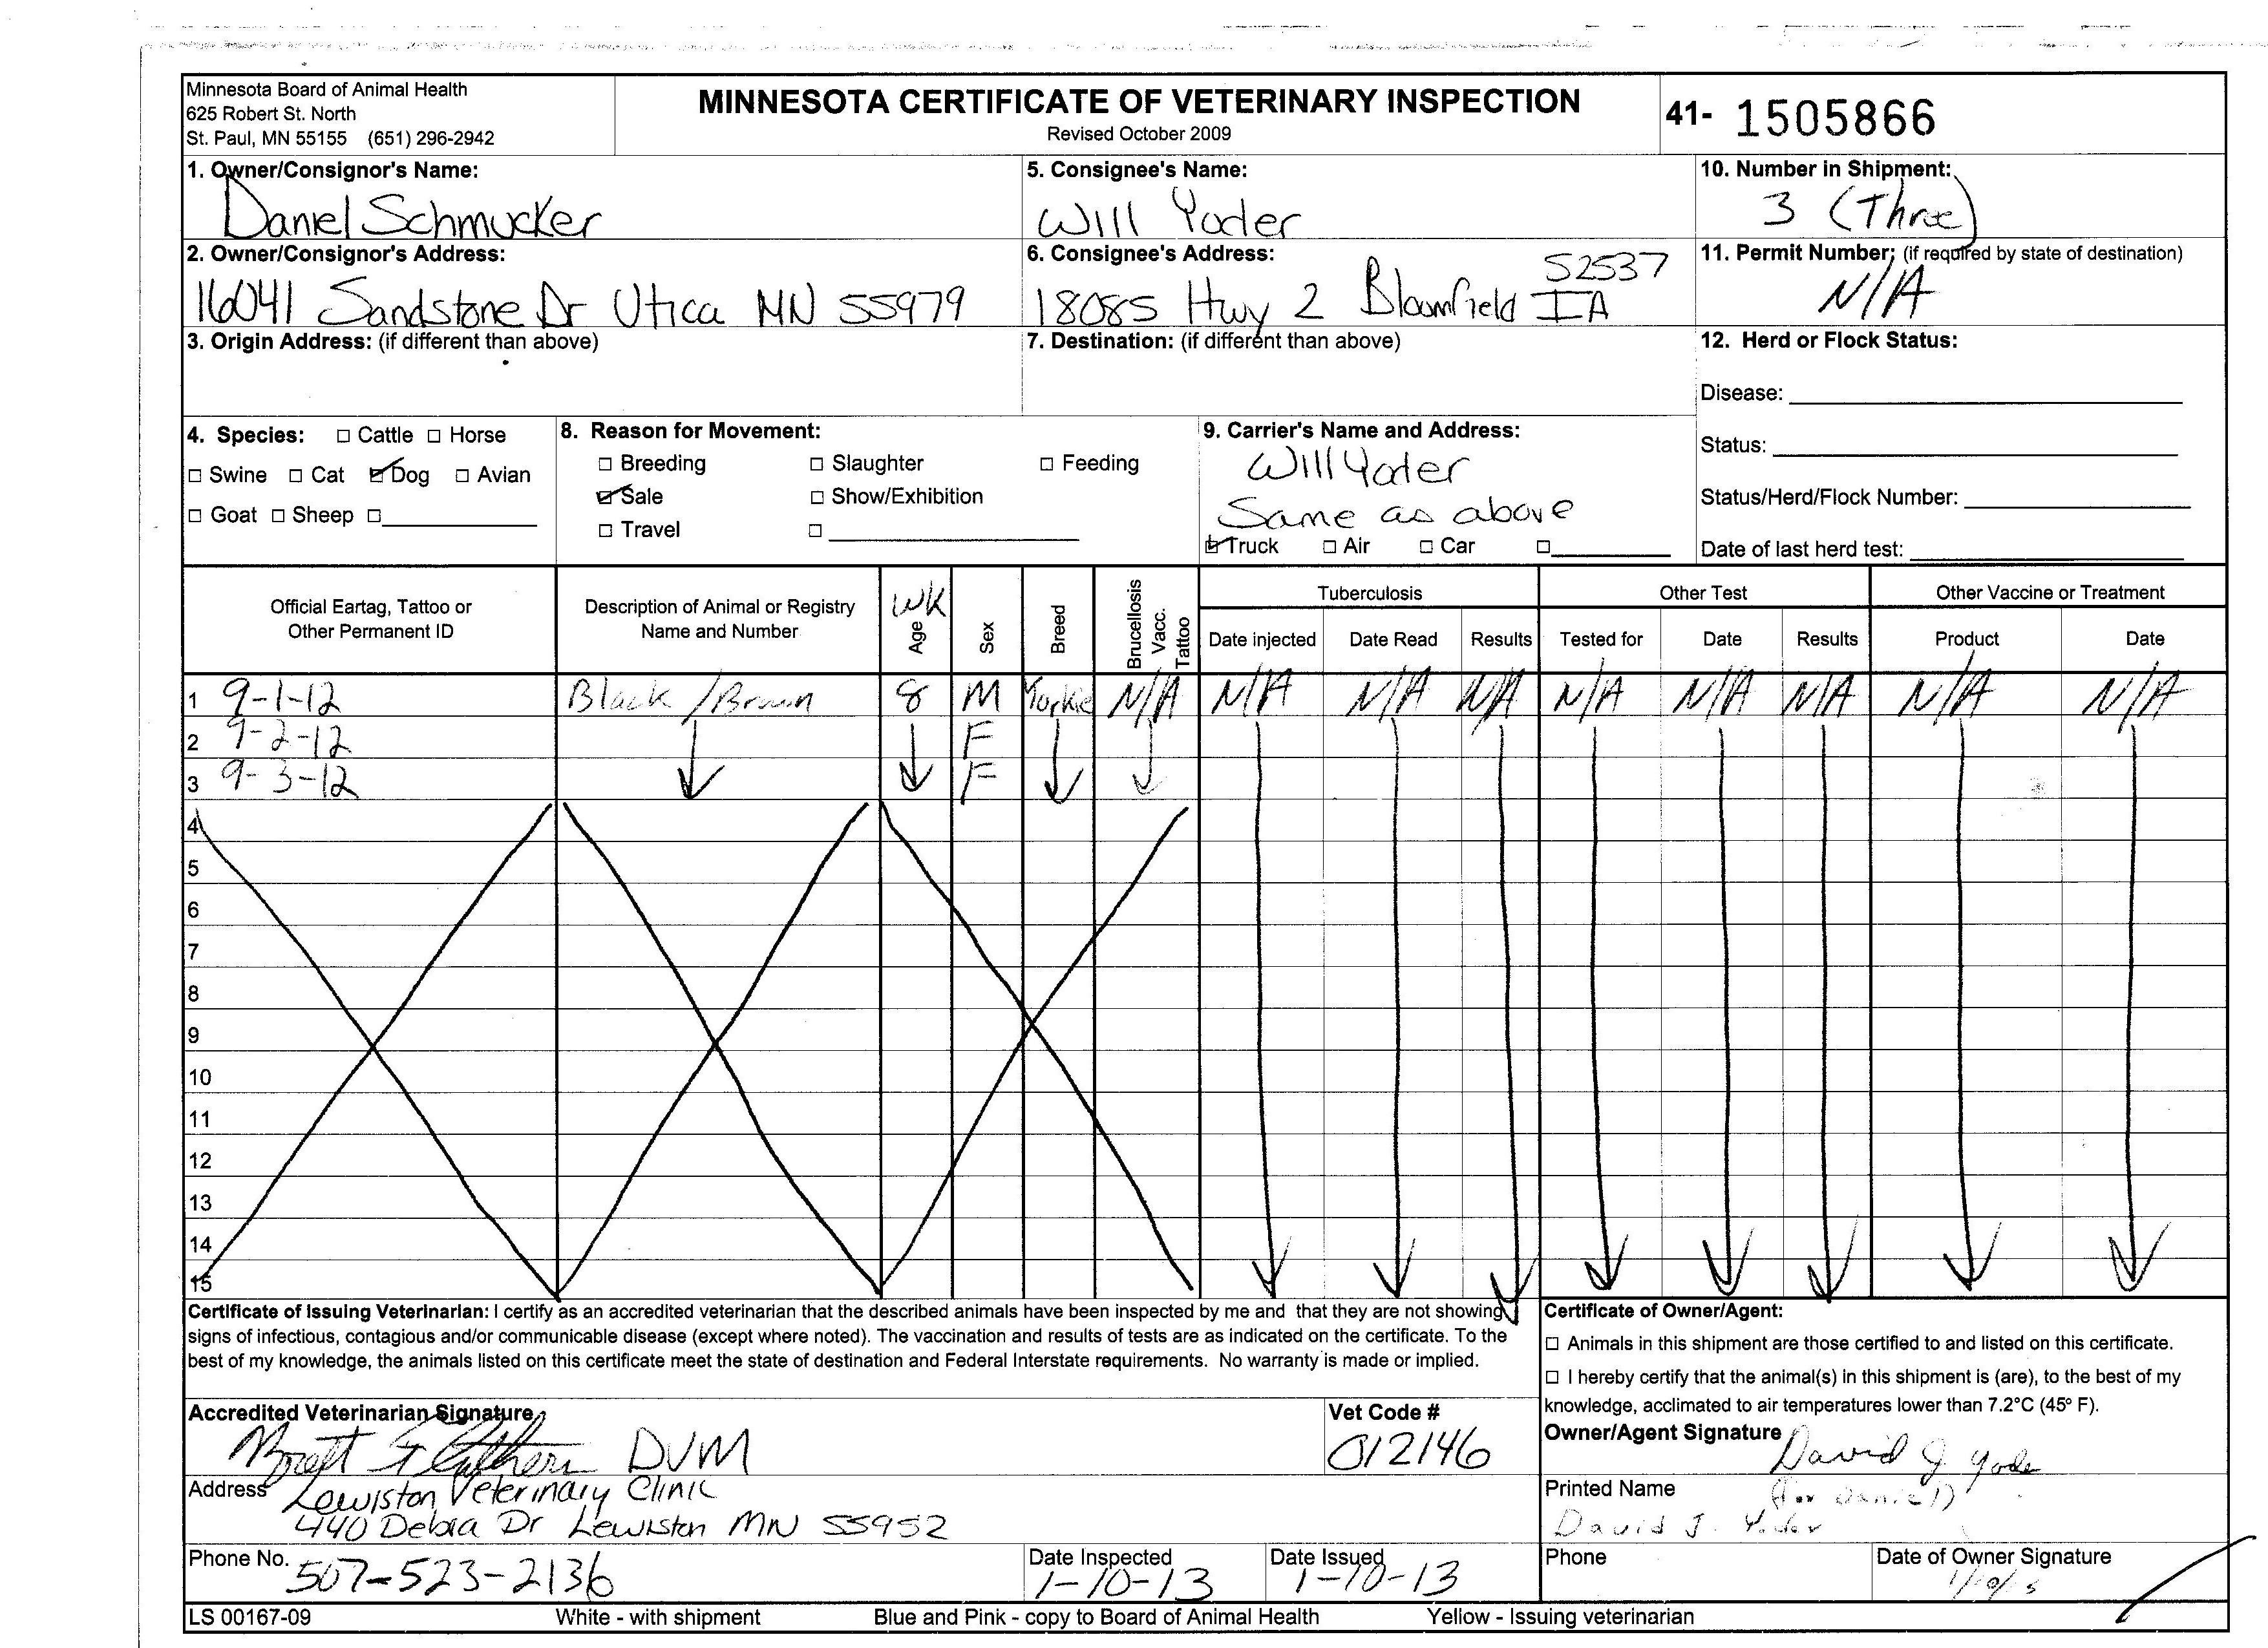 Minnesota Board of Animal Health
625 Robert St. North
St. Paul, MN 55155 (651) 296-2942
MINNESOTA CERTIFICATE OF VETERINARY INSPECTION
Revised October 2009
41- 1505866
1. Owner/Consignor's Name:
Daniel Schmucker
5. Consignee's Name:
Will Yoder
10. Number in Shipment:
3 (Three)
2. Owner/Consignor's Address:
16041 Sandstone Dr Utica MN 55979
6. Consignee's Address:
52537
18085 Hwy 2 Bloomfield IA
11. Permit Number; (if required by state of destination)
N/A
3. Origin Address: (if different than above)
7. Destination: (if different than above)
12. Herd or Flock Status:
Disease:
Status:
Status/Herd/Flock Number:
Date of last herd test:
4. Species: Cattle Horse
Swine Cat Dog Avian
Goat Sheep
8. Reason for Movement:
Breeding Slaughter Feeding
Sale Show/Exhibition
Travel
9. Carrier's Name and Address:
Will Yoder
Same as above
Truck Air Car
Official Eartag, Tattoo or
Other Permanent ID
Description of Animal or Registry
Name and Number
WK
Age
Sex
Breed
Brucellosis
Vacc.
Tattoo
Tuberculosis
Date injected Date Read Results
Other Test
Tested for Date Results
Other Vaccine or Treatment
Product Date
1 9-1-12 Black/Brown 8 M Yorkie N/A N/A N/A N/A N/A N/A N/A N/A N/A
2 9-2-12 F
3 9-3-12 F
4
5
6
7
8
9
10
11
12
13
14
15
Certificate of Issuing Veterinarian: I certify as an accredited veterinarian that the described animals have been inspected by me and that they are not showing
signs of infectious, contagious and/or communicable disease (except where noted). The vaccination and results of tests are as indicated on the certificate. To the
best of my knowledge, the animals listed on this certificate meet the state of destination and Federal Interstate requirements. No warranty is made or implied.
Certificate of Owner/Agent:
Animals in this shipment are those certified to and listed on this certificate.
I hereby certify that the animal(s) in this shipment is (are), to the best of my
knowledge, acclimated to air temperatures lower than 7.2°C (45° F).
Accredited Veterinarian Signature
Brett DVM
Vet Code #
012146
Owner/Agent Signature
David J Yoder
(for Daniel)
Address
Lewiston Veterinary Clinic
440 Debra Dr Lewiston MN 55952
Printed Name
David J. Yoder
Phone No. 507-523-2136
Date Inspected
1-10-13
Date Issued
1-10-13
Phone
Date of Owner Signature
LS 00167-09
White - with shipment
Blue and Pink - copy to Board of Animal Health
Yellow - Issuing veterinarian